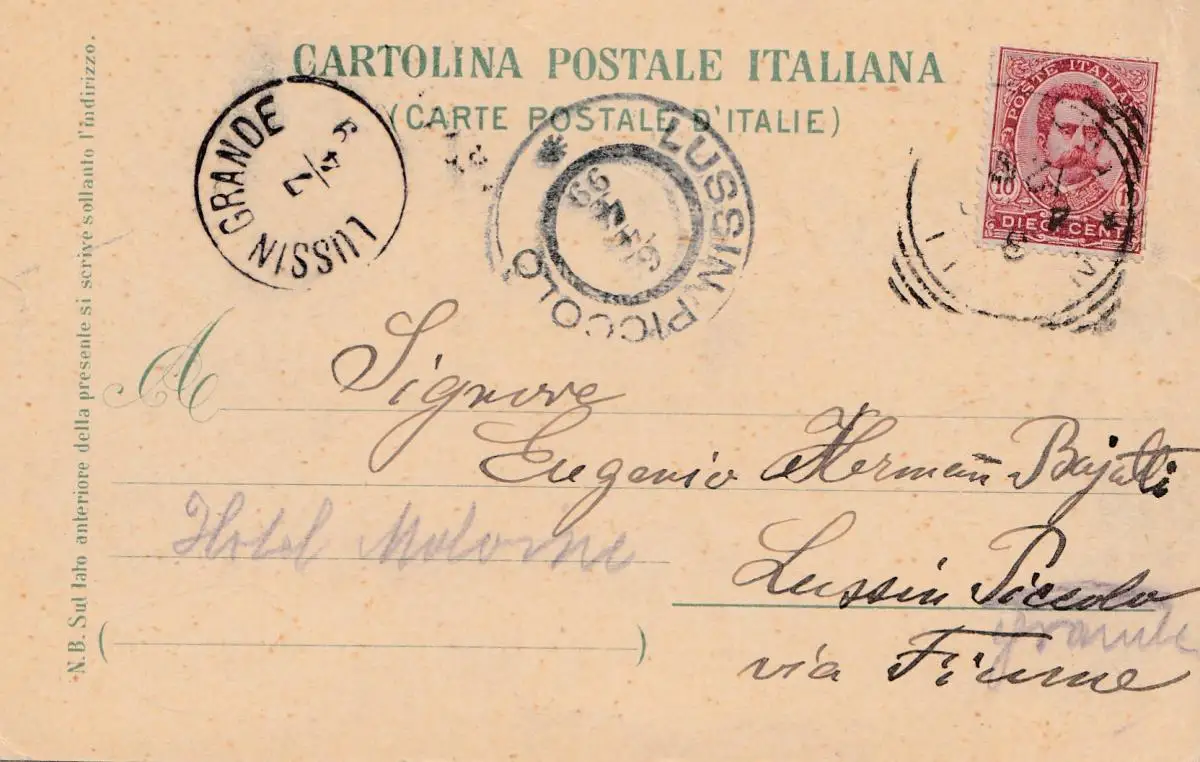 CARTOLINA POSTALE ITALIANA
(CARTE POSTALE D'ITALIE)
POSTE ITALIANE
10
DIECI CENT
LUSSIN GRANDE
LUSSIN-PICCOLO
99
A
Signore
Eugenio Hermañ
Hotel
Lussin Piccolo
Grande
via Fiume
N.B. Sul lato anteriore della presente si scrive soltanto l'indirizzo.